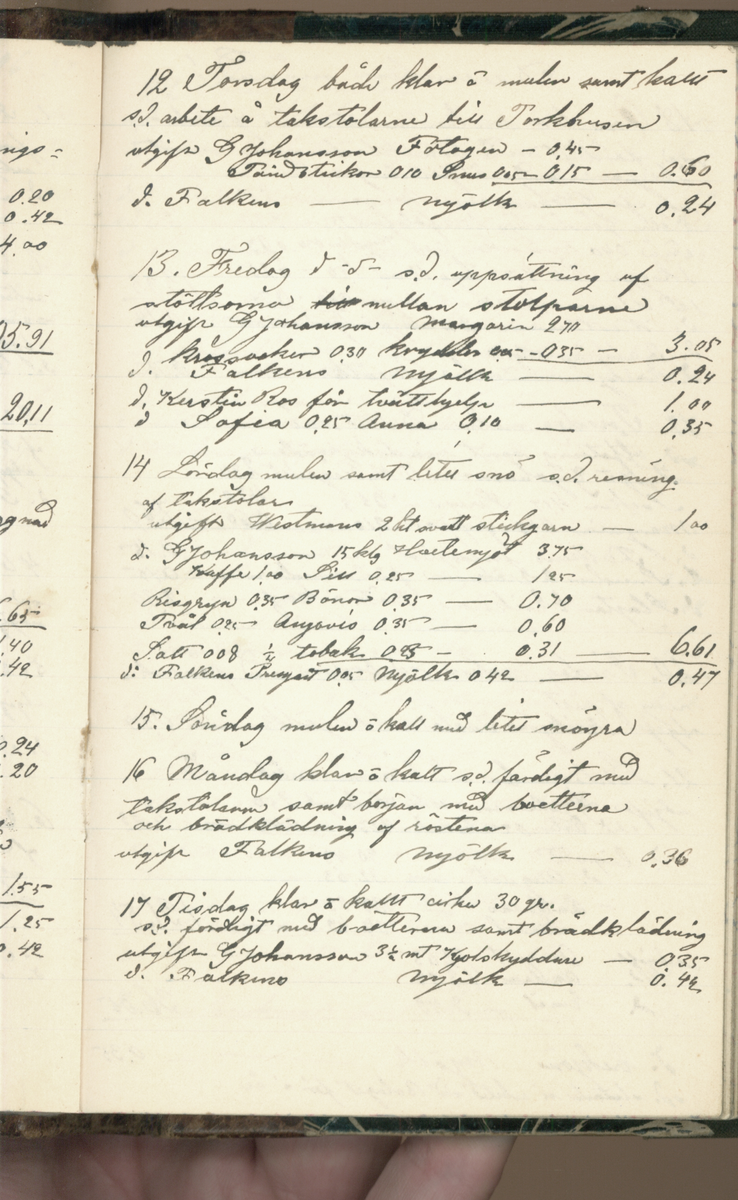 ings=
0.20
0.42
4.00
05.91
20,11
gnad
.65
.40
.42
0.24
.20
1.55
1.25
0.42
12 Torsdag både klar å mulen samt kallt
s.d. arbete å takstolarne till Torkhusen
utgift G Johansson Fotogen - 0,45
Tändstickor 010 Snus 005 - 0,15 — 0.60
d. Falkens — Mjölk — 0.24
13. Fredag d -d- s.d. uppsättning af
stöttorna mellan stolparne
utgift G Johansson Margarin 270
d. krossocker 030 kryddor 005 - 035 — 3.05
d. Falkens Mjölk — 0.24
d. Kerstin Ros för tvätthjelp — 1.00
d Sofia 0,25 Anna 0,10 — 0,35
14 Lördag mulen samt litet snö s.d. resning
af takstolar
utgift Wistmans 2 ht svatt stickgarn — 1 00
d. G Johansson 15 klg Hvetemjöl 3.75
Kaffe 1,00 Sill 0,25 — 1 25
Risgryn 0,35 Bönor 0,35 — 0.70
Tvål 0,25 Anjovis 0,35 — 0,60
Salt 008 ½ tobak 023 - 0.31 — 6.61
d: Falkens 005 Mjölk 0 42 — 0.47
15. Söndag mulen å kallt med litet snöyra
16 Måndag klar å kallt s.d. färdigt med
takstolarne samt började med boetterna
och brädklädning af röstena
utgift Falkens Mjölk — 0,36
17 Tisdag klar å kallt cirka 30 gr.
s.d. färdigt med boetterna samt brädklädning
utgift G Johansson 3½ mt Kjolskyddare — 0,35
d. Falkens Mjölk — 0.42